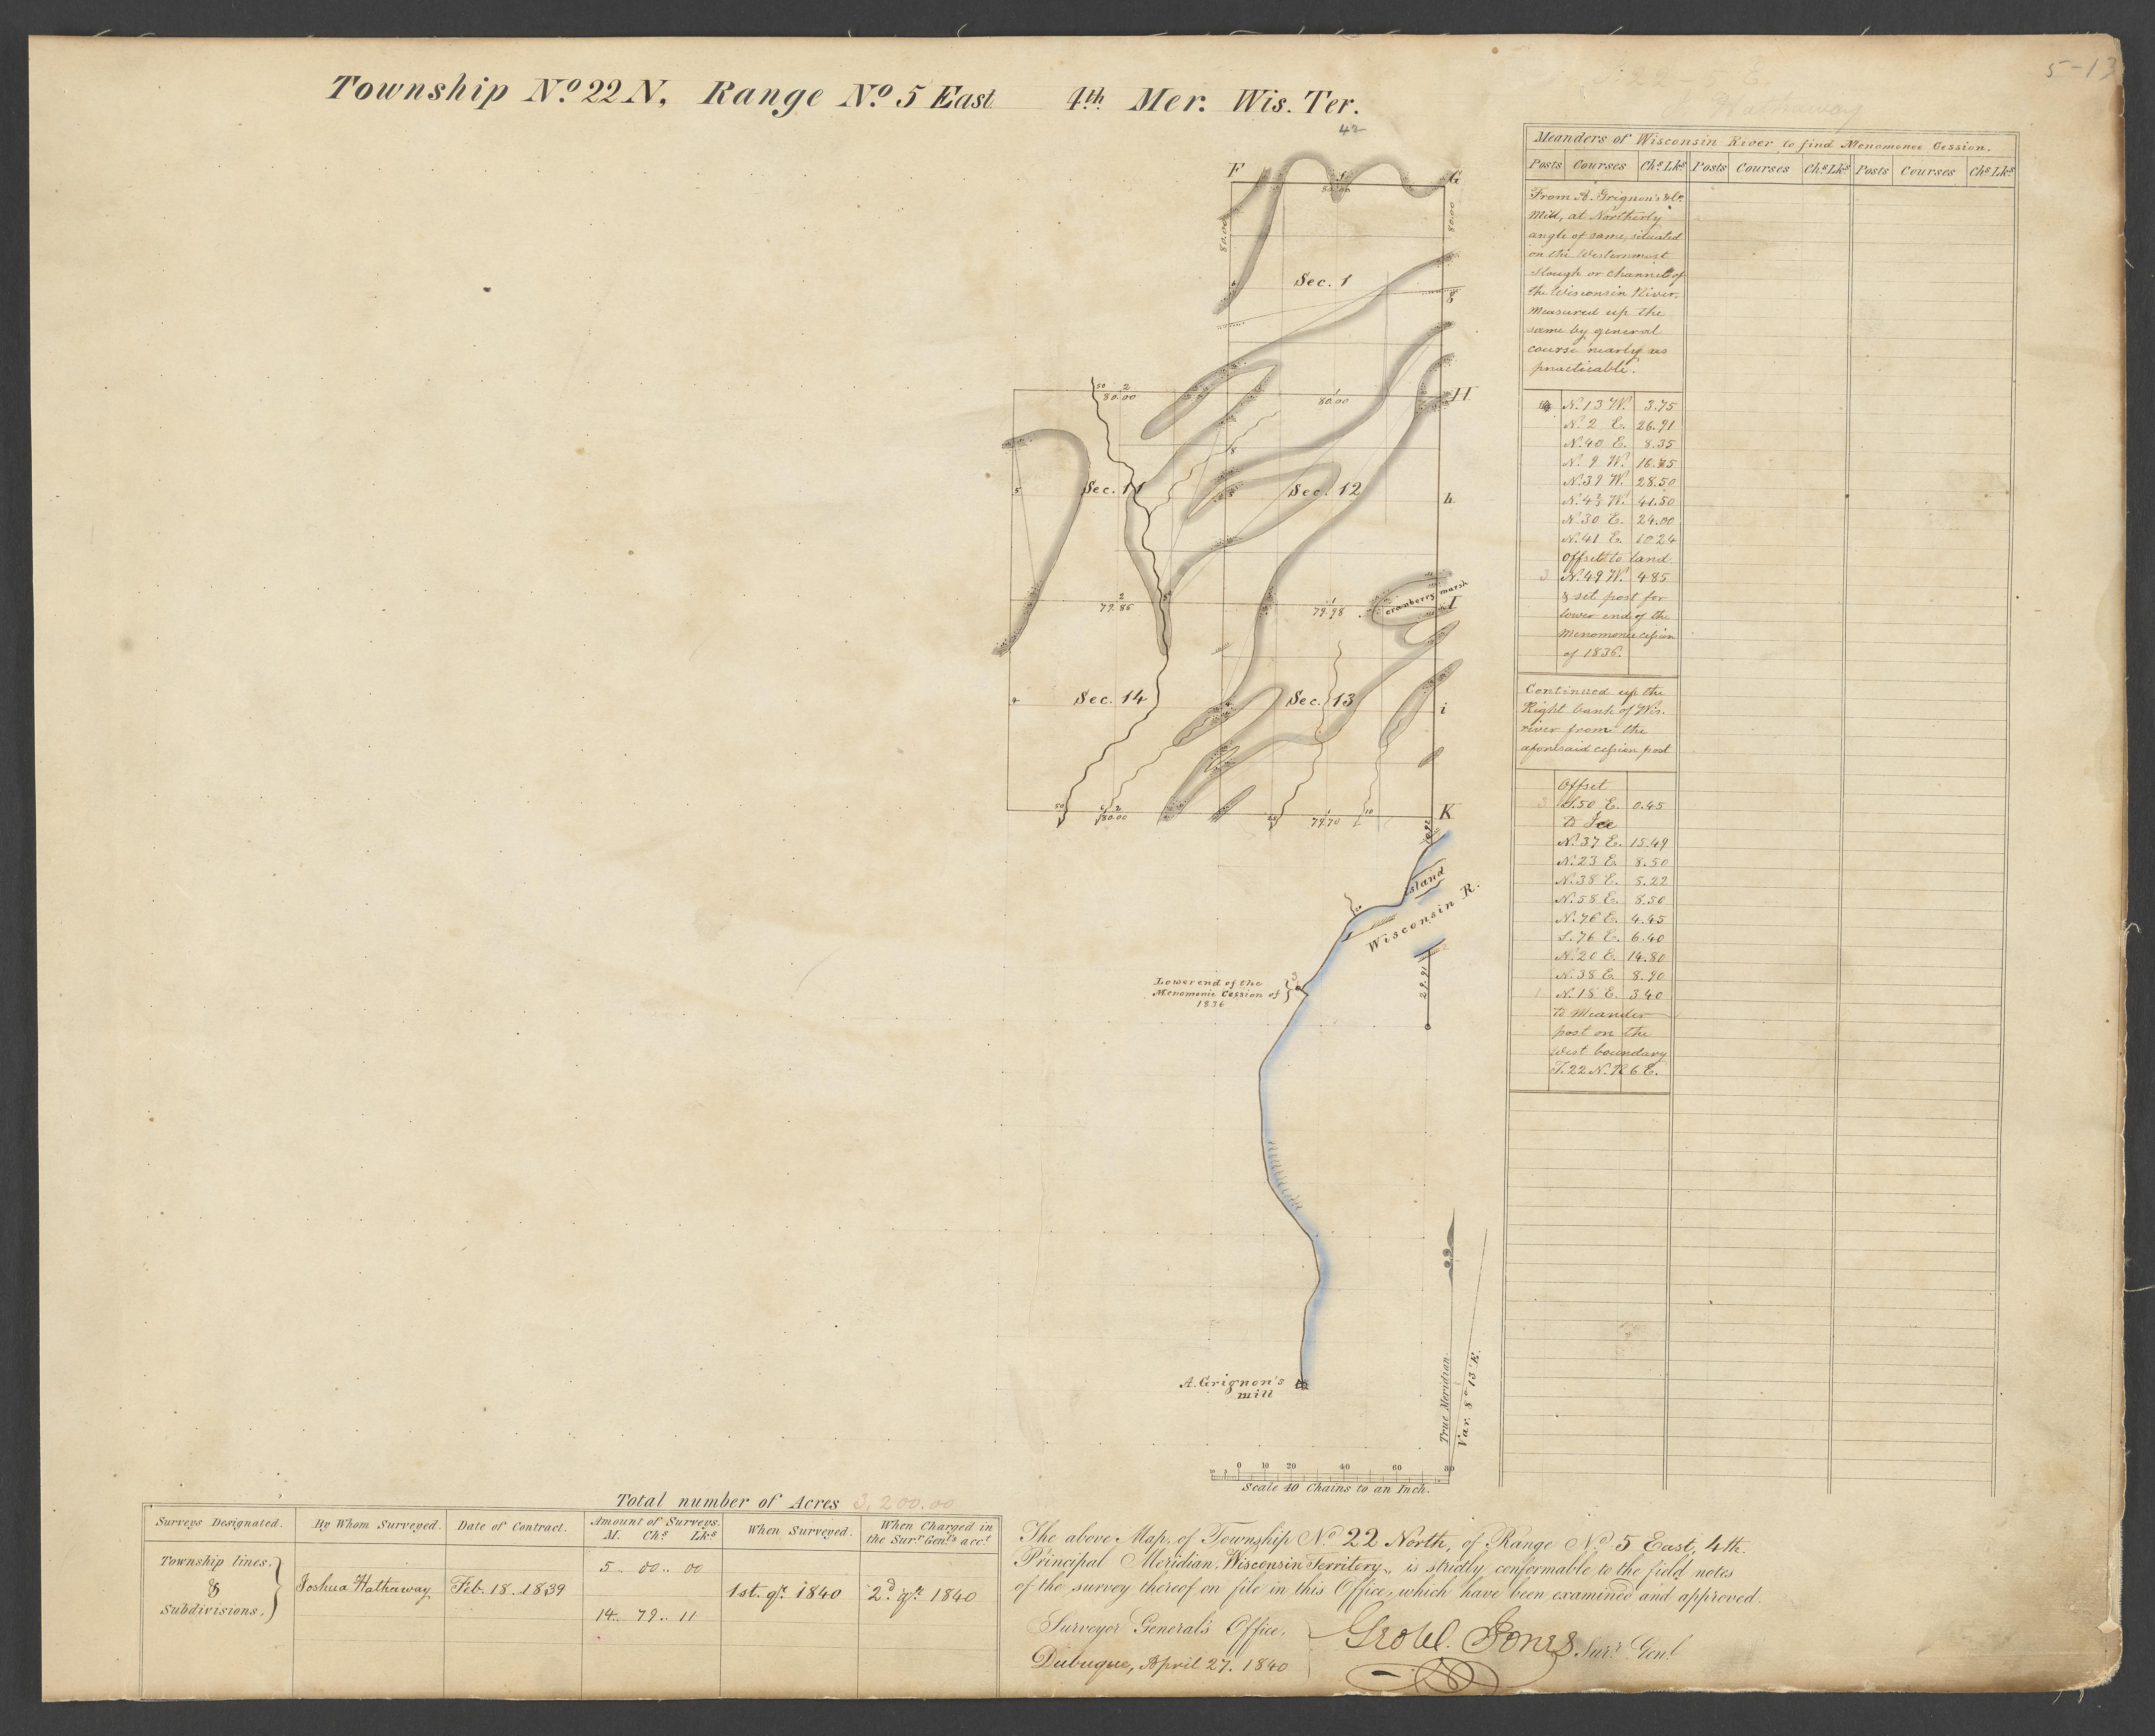 5-13
T. 22 - 5 E.
Hathaway
Township No. 22 N, Range No. 5 East 4th Mer. Wis. Ter.
42
F
1
80.00
G
80.00
80.00
Sec. 1
50 2
80.00
1
80.00
H
Sec. 11
Sec. 12
h
2
79.86
1
79.98
cranberry marsh
I
Sec. 14
Sec. 13
i
50
2
80.00
1
79.70
10
K
Island
Wisconsin R.
29.91
Lower end of the
Menomonie Cession of
1836
3
A. Grignon's
mill
True Meridian.
Var. 8° 13' E.
0 10 20 40 60 80
Scale 40 Chains to an Inch.
Meanders of Wisconsin River to find Menomonee Cession.
Posts Courses Chs Lks Posts Courses Chs Lks Posts Courses Chs Lks
From A. Grignon's & Co.
Mill, at Northerly
angle of same, situated
on the Westernmost
slough or channel of
the Wisconsin River,
measured up the
same by general
course nearly as
practicable.
N. 13 W. 3.75
N. 2 E. 26.91
N. 40 E. 8.35
N. 9 W. 16.75
N. 39 W. 28.50
N. 43 W. 41.50
N. 30 E. 24.00
N. 41 E. 10.24
Offset to land
3 N. 49 W. 4.85
& set post for
lower end of the
Menomonie cession
of 1836.
Continued up the
Right bank of Wis.
river from the
aforesaid cession post
Offset
3 S. 50 E. 0.45
to Ice
N. 37 E. 15.49
N. 23 E. 8.50
N. 38 E. 5.22
N. 58 E. 8.50
N. 76 E. 4.45
S. 76 E. 6.40
N. 20 E. 14.80
N. 38 E. 8.90
1 N. 18 E. 3.40
to Meander
post on the
West boundary
T. 22 N. R 6 E.
Total number of Acres 3,200.00
Surveys Designated. By Whom Surveyed. Date of Contract. Amount of Surveys. M. Chs Lks When Surveyed. When Charged in the Surr Genl's acct.
Township lines, 5.. 00.. 00
& Joshua Hathaway Feb. 18. 1839 1st. qr. 1840 2d. qr. 1840
Subdivisions. 14.. 79.. 11
The above Map, of Township No 22 North, of Range No 5 East, 4th.
Principal Meridian, Wisconsin Territory, is strictly conformable to the field notes
of the survey thereof on file in this Office, which have been examined and approved.
Surveyor General's Office,
Dubuque, April 27. 1840
Geo W. Jones Surr Genl